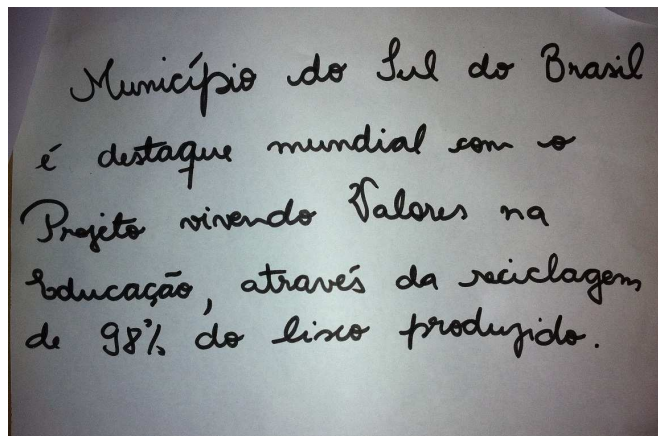 Município do Sul do Brasil
é destaque mundial com o
Projeto vivendo Valores na
Educação, através da reciclagem
de 98% do lixo produzido.